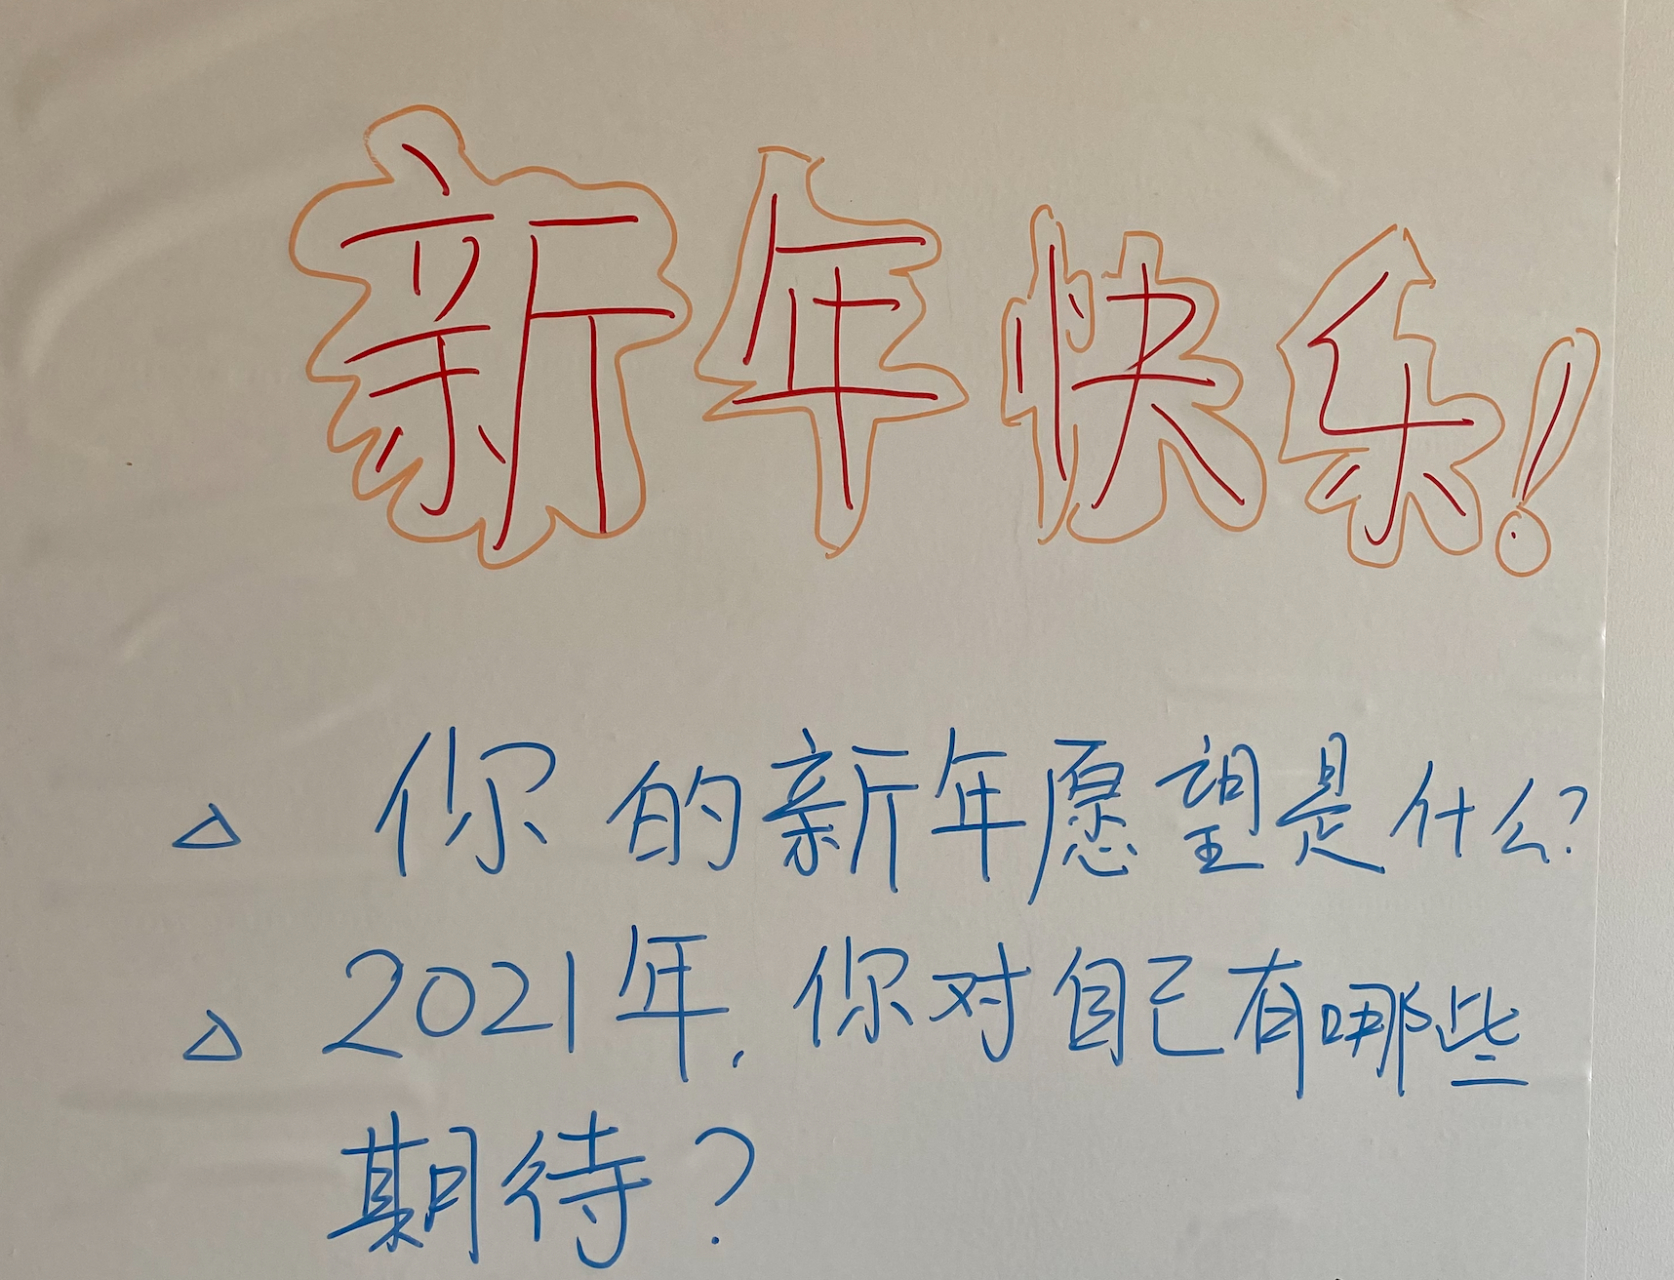 新年快乐!
△ 你的新年愿望是什么?
△ 2021年,你对自己有哪些
期待?